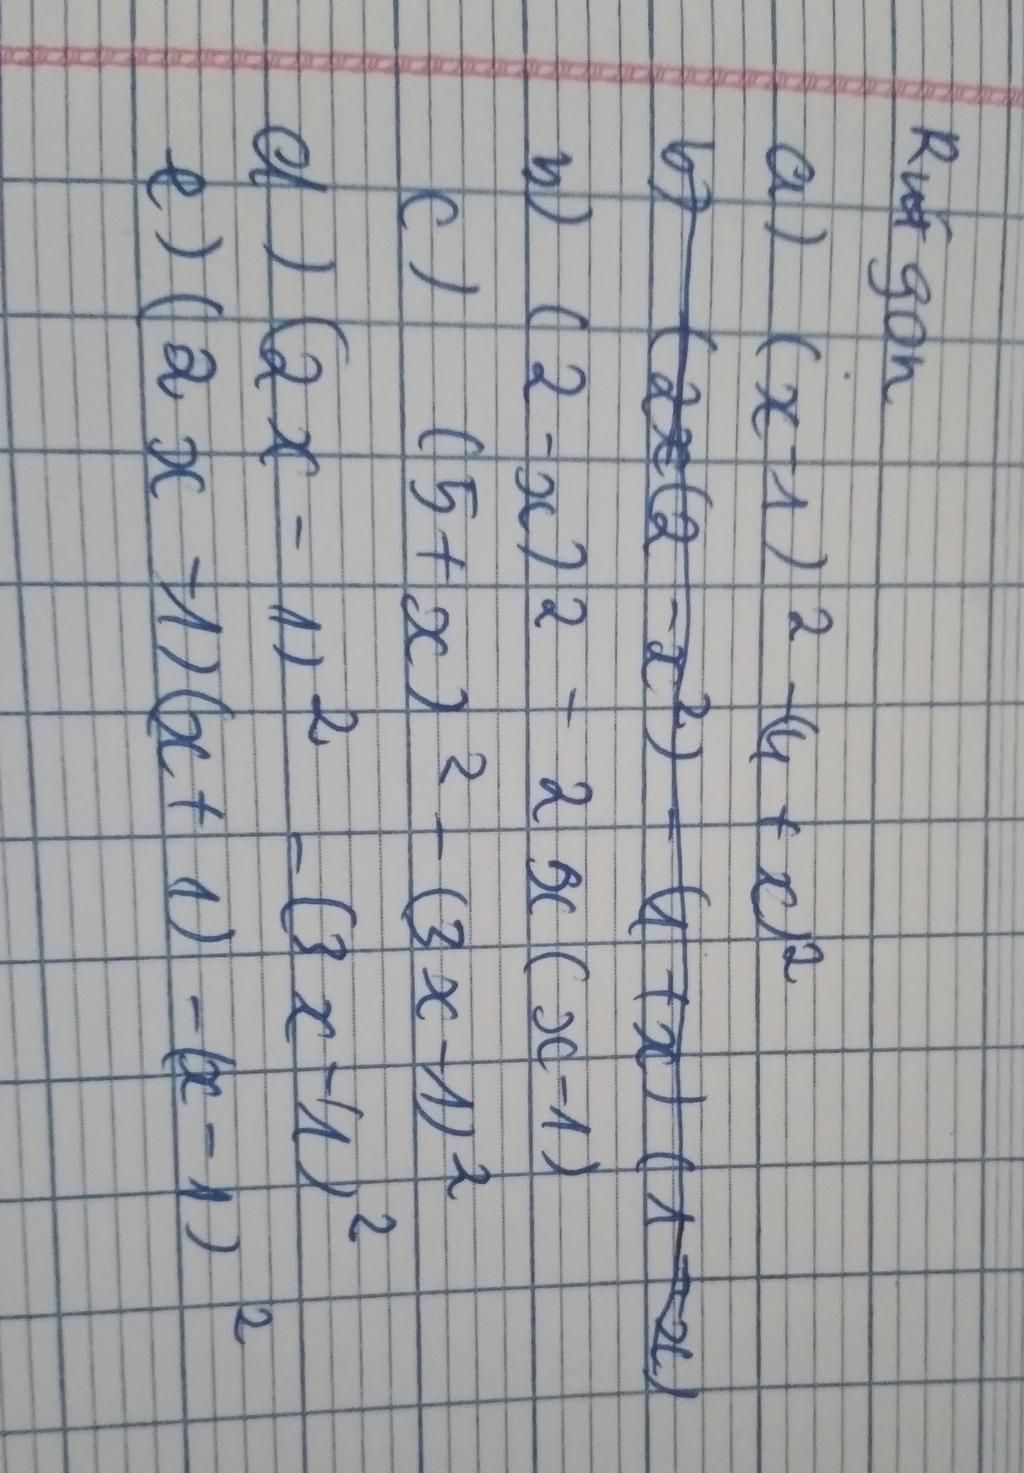 Rút gọn
a) (x-1)² -(4 + x)²
b) (2x(2 - x²) - (1 + x) (1 - x)
b) (2 - x)² - 2x(x-1)
c) (5 + x)² - (3x - 1)²
d) (2x - 1)² - (3x - 1)²
e) (2x - 1)(x + 1) - (x - 1)²